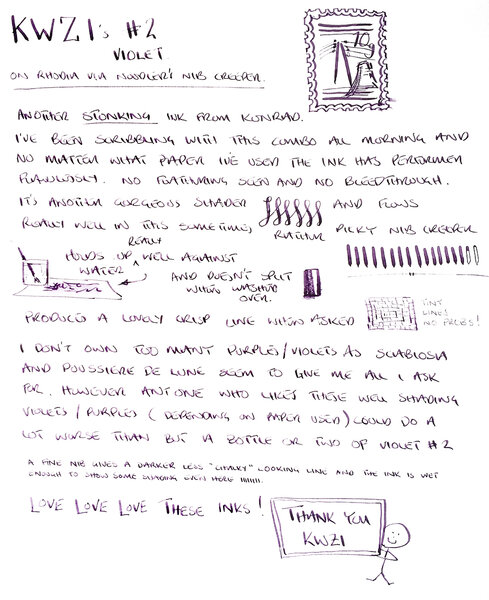 KWZI's #2
VIOLET
ON RHODIA VIA NOODLER'S NIB CREEPER.
10g
ANOTHER STONKING INK FROM KONRAD.
I'VE BEEN SCRIBBLING WITH THIS COMBO ALL MORNING AND
NO MATTER WHAT PAPER I'VE USED THE INK HAS PERFORMED
FLAWLESSLY. NO FEATHERING SEEN AND NO BLEEDTHROUGH.
IT'S ANOTHER GORGEOUS SHADER AND FLOWS
REALLY WELL IN THIS SOMETIMES RATHER PICKY NIB CREEPER
HOLDS UP REALLY WELL AGAINST
WATER AND DOESN'T SPLIT
WHEN WASHED
OVER.
PRODUCES A LOVELY CRISP LINE WHEN ASKED
TINY
LINES
NO PROBS!
I DON'T OWN TOO MANY PURPLES/VIOLETS AS SCABIOSA
AND POUSSIERE DE LUNE SEEM TO GIVE ME ALL I ASK
FOR. HOWEVER ANYONE WHO LIKES THESE WELL SHADING
VIOLETS/PURPLES (DEPENDING ON PAPER USED) COULD DO A
LOT WORSE THAN BUY A BOTTLE OR TWO OF VIOLET #2
A FINE NIB GIVES A DARKER LESS "CHALKY" LOOKING LINE AND THE INK IS WET
ENOUGH TO SHOW SOME SHADING EVEN HERE !!!!!!!
LOVE LOVE LOVE THESE INKS!
THANK YOU
KWZI